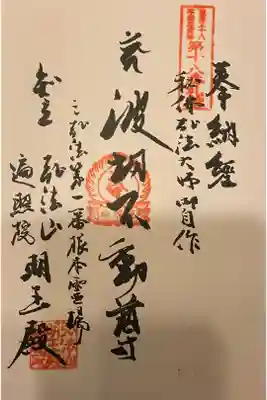 第十八番
奉納経
秘佛弘法大師御自作
波切不動尊
三弘法第一番根本霊場
弘法山
遍照院
明王殿